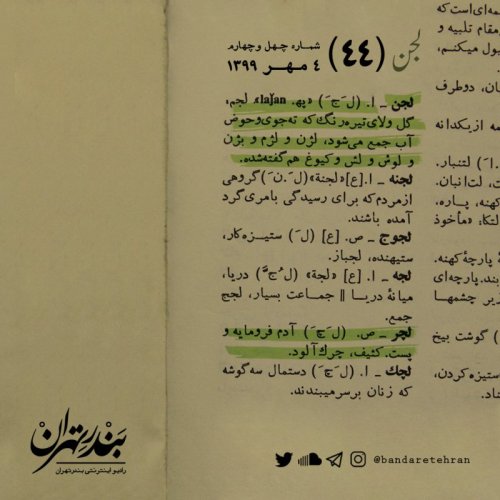 لجن (۴۴) شماره چهل و چهارم
۴ مهر ۱۳۹۹
لجن ـ ا. (لَ جَ) «په. laǰan» لجم،
گل و لای تیره رنگ که ته جوی و حوض
آب جمع می‌شود، لژن و لژم و بژن
و لوش و لش و کیوغ هم گفته شده.
لجنه ـ ا. [ع] «لجنة» (لَ. نَ) گروهی
از مردم که برای رسیدگی بامری گرد
آمده باشند.
لجوج ـ ص. [ع] (لَ) ستیزه کار،
ستیهنده، لجباز.
لجه ـ ا. [ع] «لجة» (لُ جَّ) دریا،
میانهٔ دریا || جماعت بسیار، لجج
جمع.
لچر ـ ص. (لَ چَ) آدم فرومایه و
پست. کثیف، چرک آلود.
لچک ـ ا. (لَ چَ) دستمال سه گوشه
که زنان بر سر میبندند.
مقام تلبیه و
ان، دوطرف
لتنبار.
لت انبان.
کهنه، پاره.
پارچهٔ کهنه.
بند. پارچه‌ای
زیر چشمها
) گوشت بیخ
ستیزه کردن،
بندر تهران
رادیو اینترنتی بندر تهران
@bandaretehran